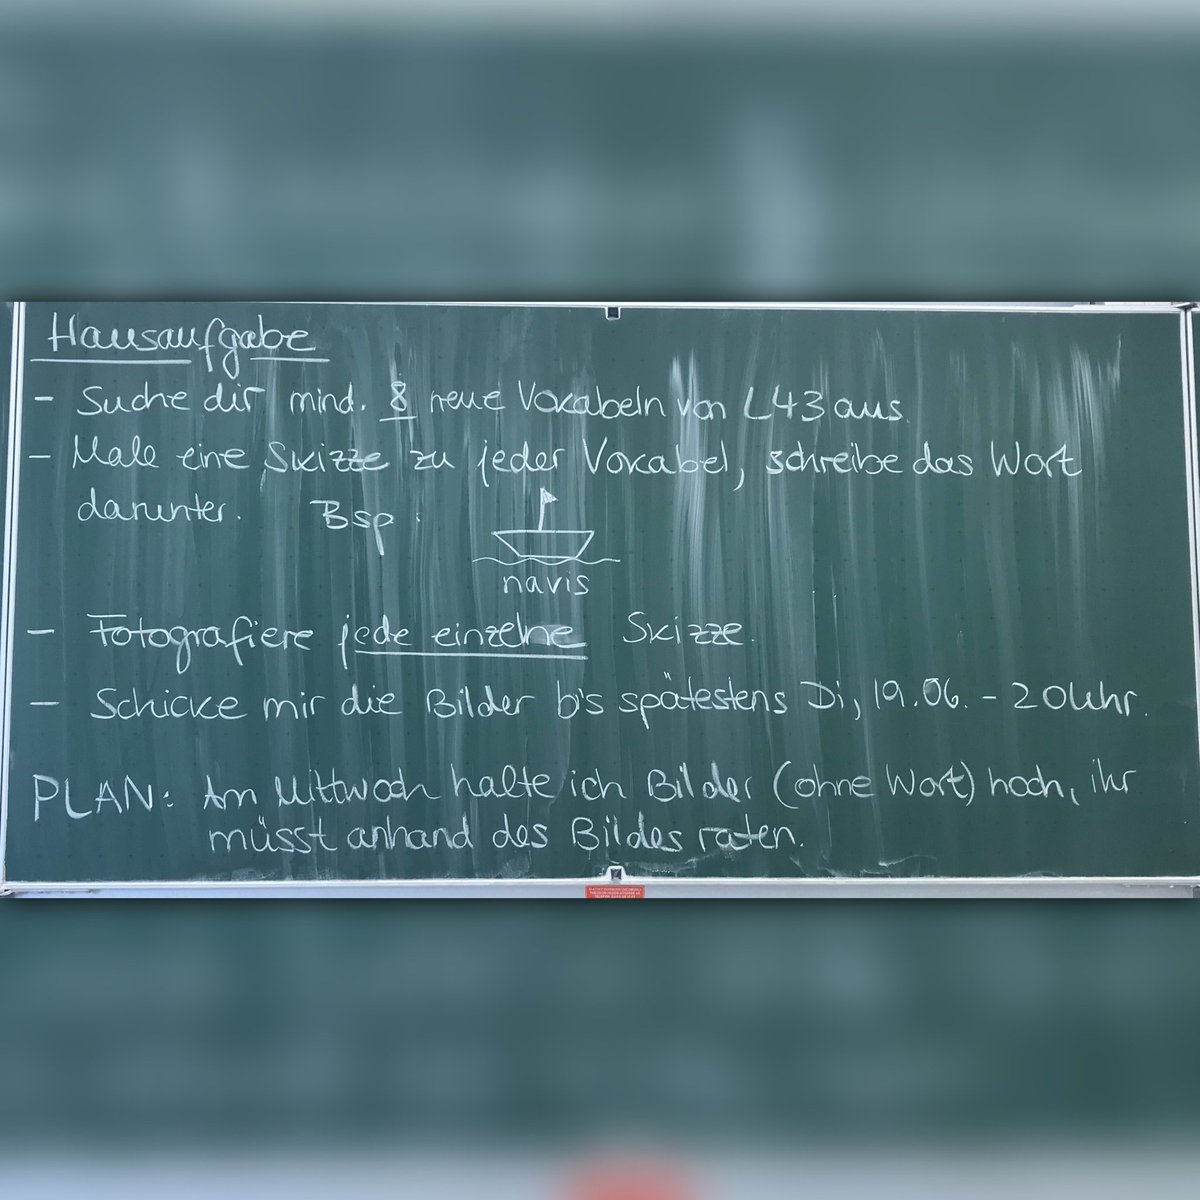 Hausaufgabe
- Suche dir mind. 8 neue Vokabeln von L43 aus.
- Male eine Skizze zu jeder Vokabel, schreibe das Wort
darunter. Bsp.:
navis
- Fotografiere jede einzelne Skizze.
- Schicke mir die Bilder bis spätestens Di, 19.06. - 20 Uhr.
PLAN: Am Mittwoch halte ich Bilder (ohne Wort) hoch, ihr
müsst anhand des Bildes raten.